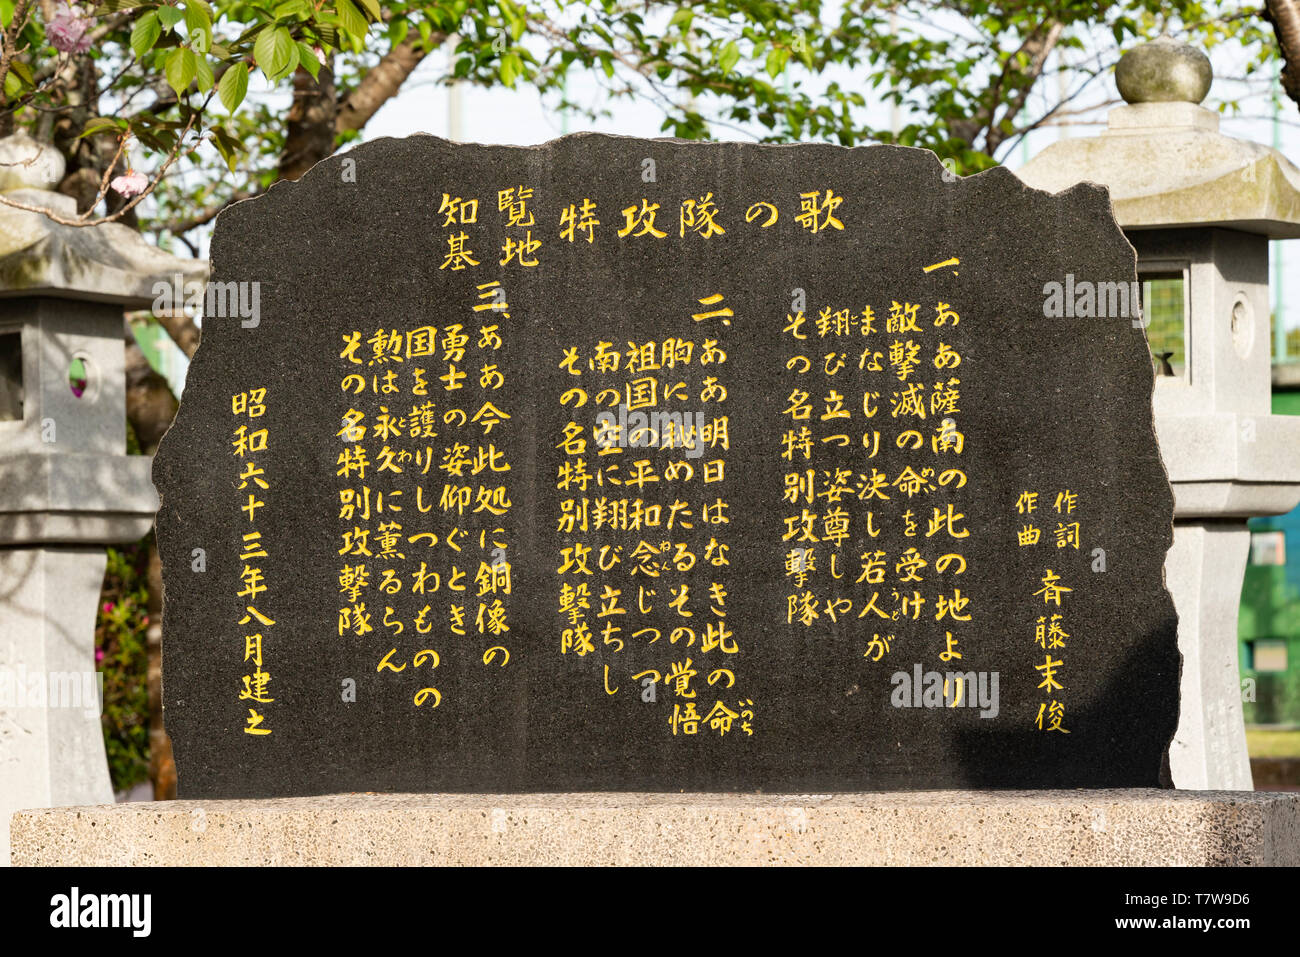 知覧
基地
特攻隊の歌
作詞
作曲
斉藤末俊
一、ああ薩南の此の地より
敵撃滅の命を受け
めい
まなじり決し若人が
うど
翔び立つ姿尊しや
と
その名特別攻撃隊
二、ああ明日はなき此の命
いのち
胸に秘めたるその覚悟
祖国の平和念じつつ
ねん
南の空に翔び立ちし
その名特別攻撃隊
三、ああ今此処に銅像の
勇士の姿仰ぐとき
国を護りしつわものの
勲は永久に薫るらん
とわ
その名特別攻撃隊
昭和六十三年八月建之
alamy
Image ID: T7W9D6
www.alamy.com